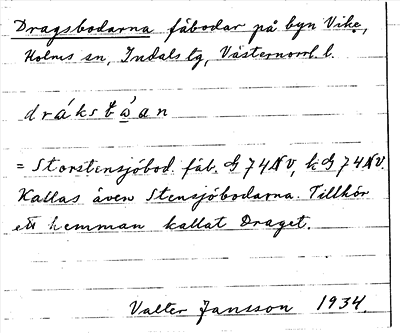 Dragsbodarna fäbodar på byn Vike,
Holms sn, Indals tg, Västernorrl. l.
= Storstensjöbod. fäb. G 74 NV, kG 74 NV.
Kallas även Stensjöbodarna. Tillhör
ett hemman kallat Draget.
Valter Jansson 1934.